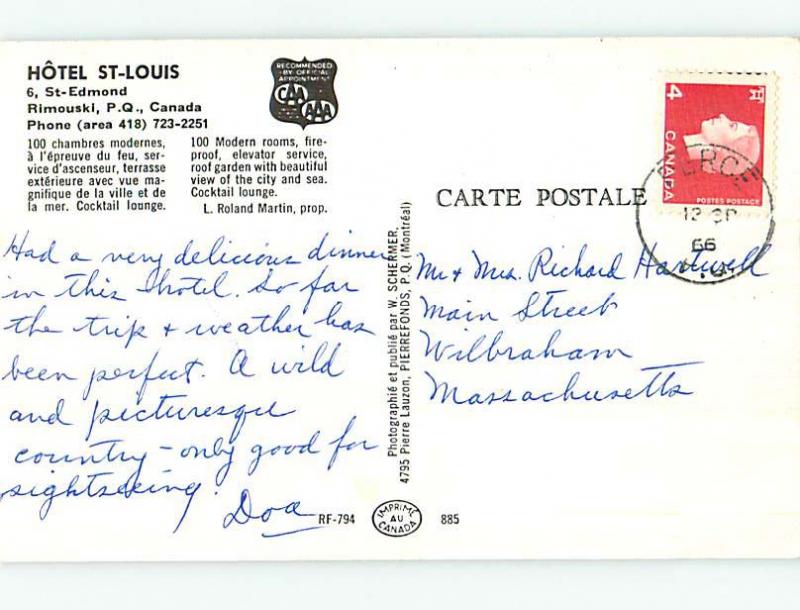 HÔTEL ST-LOUIS
6, St-Edmond
Rimouski, P.Q., Canada
Phone (area 418) 723-2251
100 chambres modernes,
à l'épreuve du feu, ser-
vice d'ascenseur, terrasse
extérieure avec vue ma-
gnifique de la ville et de
la mer. Cocktail lounge.
100 Modern rooms, fire-
proof, elevator service,
roof garden with beautiful
view of the city and sea.
Cocktail lounge.
L. Roland Martin, prop.
RECOMMENDED
BY OFFICIAL
APPOINTMENT
CAA
AAA
Had a very delicious dinner
in this hotel. So far
the trip + weather has
been perfect. A wild
and picturesque
country - only good for
sightseeing.
Doa
RF-794
IMPRIMÉ
AU
CANADA
885
Photographié et publié par W. SCHERMER,
4795 Pierre Lauzon, PIERREFONDS, P.Q. (Montréal)
CARTE POSTALE
4
CANADA
POSTES POSTAGE
PERCE
66
Mr & Mrs. Richard Hartwell
Main Street
Wilbraham
Massachusetts